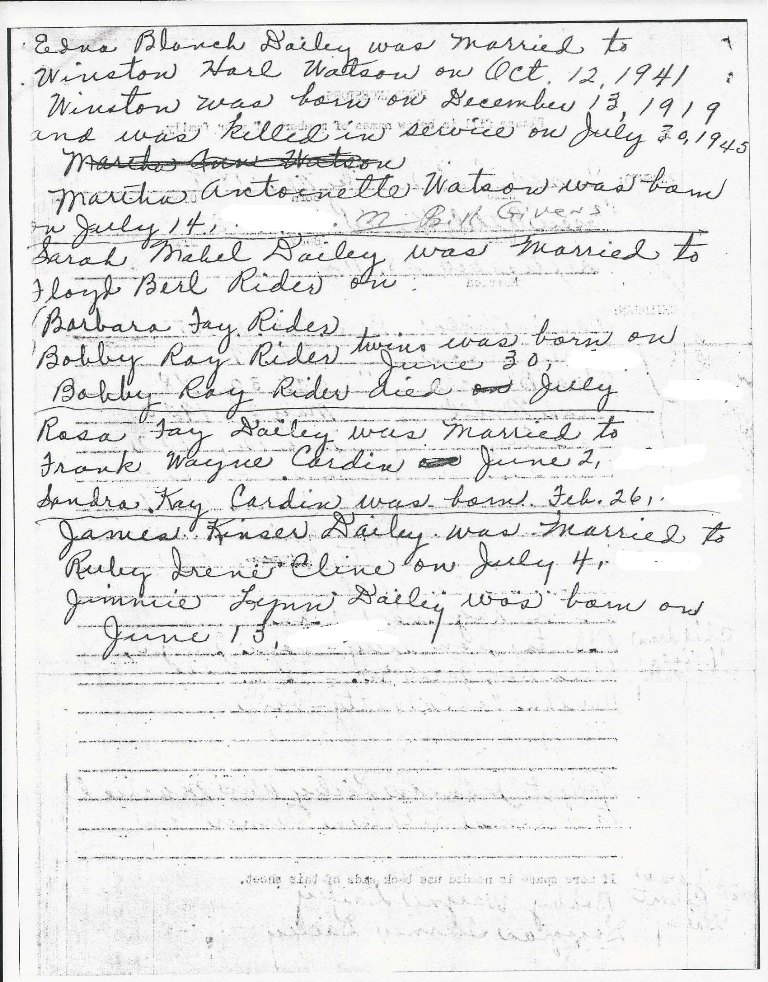 Edna Blanch Dailey was married to
Winston Harl Watson on Oct. 12, 1941
Winston was born on December 13, 1919
and was killed in service on July 30, 1945
Martha Ann Watson
Martha Antoinette Watson was born
on July 14,
m Bill Givens
Sarah Mabel Dailey was married to
Floyd Berl Rider on
Barbara Fay Rider
Bobby Ray Rider twins was born on
June 30,
Bobby Ray Rider died on July
Rosa Fay Dailey was married to
Frank Wayne Cardin on June 2,
Sandra Kay Cardin was born Feb. 26,
James Kinser Dailey was married to
Ruby Irene Cline on July 4,
Jimmie Lynn Dailey was born on
June 13,
If more space is needed use back side of this sheet.